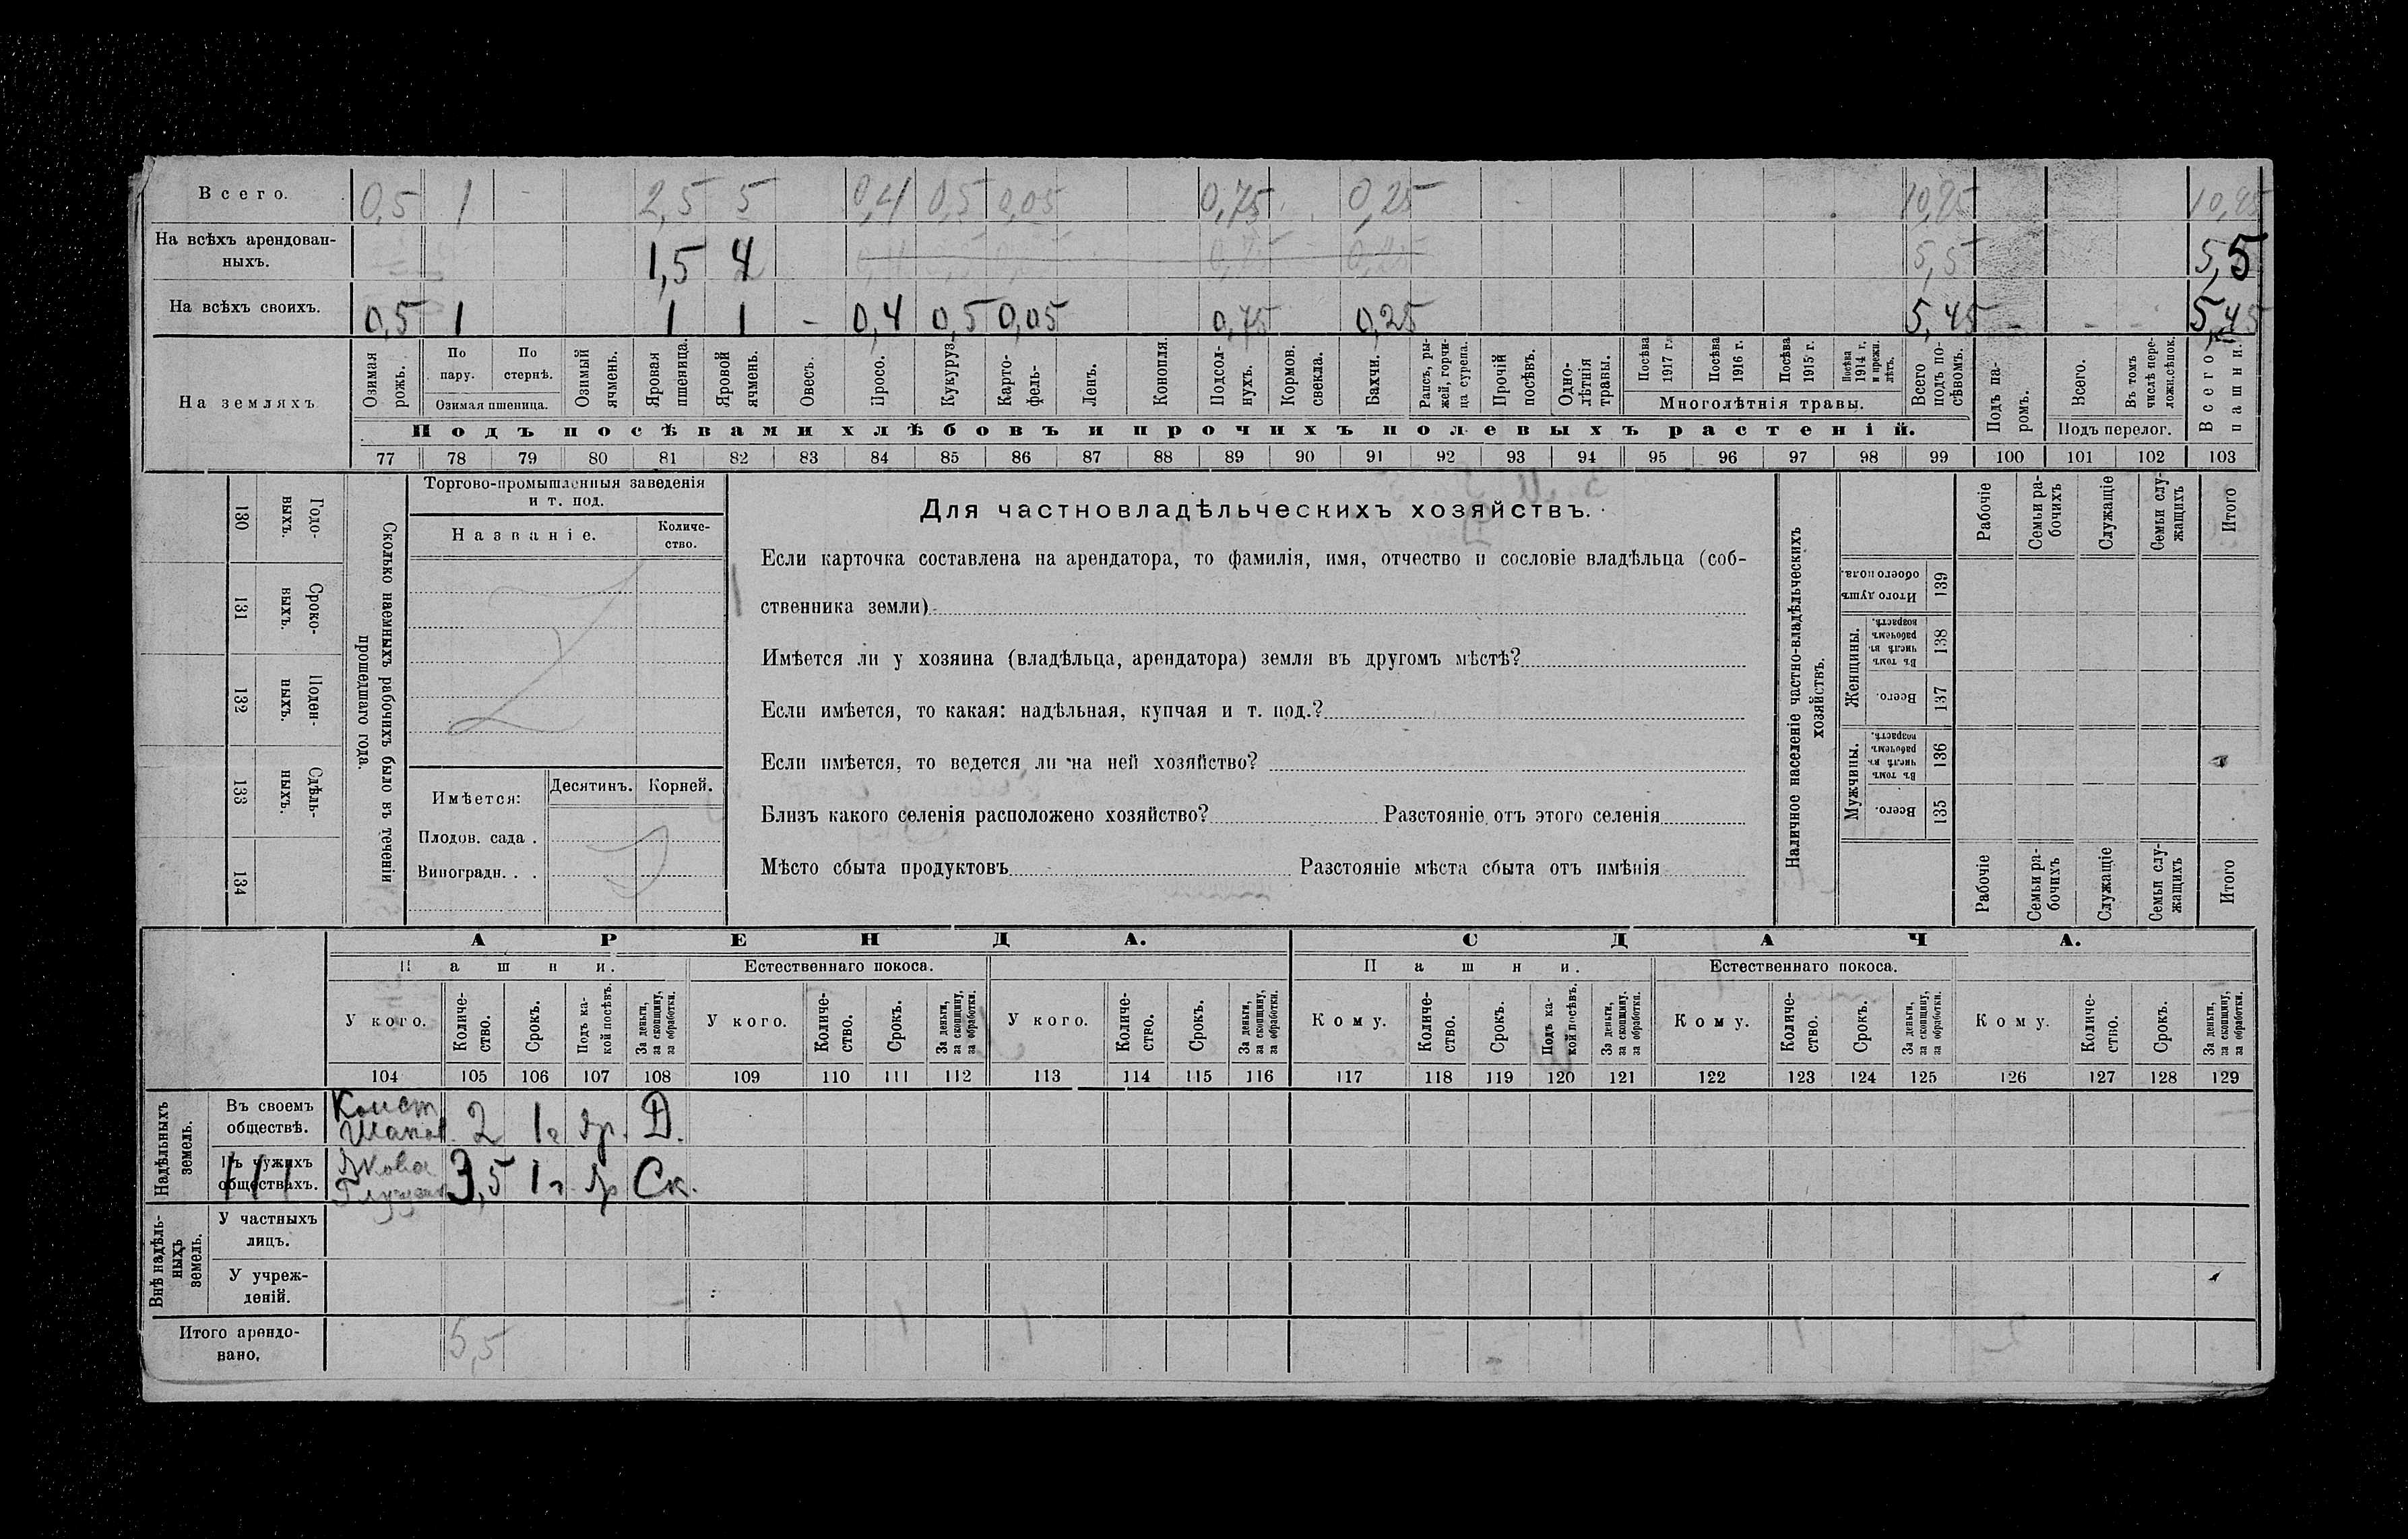 Всего. 0,5 1 - 2,5 5 0,4 0,5 0,05 0,75 0,25 10,95 10,95
На всѣхъ арендован-
ныхъ. 1,5 4 5,5 5,5
На всѣхъ своихъ. 0,5 1 1 1 - 0,4 0,5 0,05 0,75 0,25 5,45 - - - 5,45
На земляхъ
Озимая рожь.
По пару.
По стернѣ.
Озимая пшеница.
Озимый ячмень.
Яровая пшеница.
Яровой ячмень.
Овесъ.
Просо.
Кукуруз.
Карто-
фель-
Ленъ.
Конопля.
Подсол-
нухъ.
Кормов. свекла.
Бахчи.
Рапсъ, ры-
жей, горчи-
ца сурепа.
Прочій посѣвъ.
Одно-
лѣтнія травы.
Посѣва 1917 г.
Посѣва 1916 г.
Посѣва 1915 г.
Посѣва 1914 г. и прежн. лѣтъ.
Многолѣтнія травы.
Всего подъ по-
сѣвомъ.
Подъ па-
ромъ.
Всего.
Въ томъ числѣ пере-
ложн.сѣнок.
Подъ перелог.
Всего пашни.
Подъ посѣвами хлѣбовъ и прочихъ полевыхъ растеній.
77 78 79 80 81 82 83 84 85 86 87 88 89 90 91 92 93 94 95 96 97 98 99 100 101 102 103
130 Годо-
выхъ.
131 Сроко-
выхъ.
132 Поден-
ныхъ.
133 Сдѣль-
ныхъ.
134
Сколько наемныхъ рабочихъ было въ теченіи
прошедшаго года.
Торгово-промышленныя заведенія
и т. под.
Названіе.
Количе-
ство.
Имѣется:
Десятинъ. Корней.
Плодов. сада .
Виноградн. . .
Для частновладѣльческихъ хозяйствъ.
Если карточка составлена на арендатора, то фамилія, имя, отчество и сословіе владѣльца (соб-
ственника земли)
Имѣется ли у хозяина (владѣльца, арендатора) земля въ другомъ мѣстѣ?
Если имѣется, то какая: надѣльная, купчая и т. под.?
Если имѣется, то ведется ли на ней хозяйство?
Близъ какого селенія расположено хозяйство? Разстояніе отъ этого селенія
Мѣсто сбыта продуктовъ Разстояніе мѣста сбыта отъ имѣнія
Наличное населеніе частно-владѣльческихъ
хозяйствъ.
Рабочіе
Семьи ра-
бочихъ
Служащіе
Семьи слу-
жащихъ
Итого
Итого душъ обоего пола. 139
Женщины.
Въ томъ числѣ въ рабочемъ возрастѣ. 138
Всего. 137
Мужчины.
Въ томъ числѣ въ рабочемъ возрастѣ. 136
Всего. 135
Рабочіе
Семьи ра-
бочихъ
Служащіе
Семьи слу-
жащихъ
Итого
АРЕНДА. СДАЧА.
Пашни. Естественнаго покоса. Пашни. Естественнаго покоса.
У кого. Количе-
ство. Срокъ. Подъ ка-
кой посѣвъ. За деньги,
за скопщину,
за обработки.
У кого. Количе-
ство. Срокъ. За деньги,
за скопщину,
за обработки.
У кого. Количе-
ство. Срокъ. За деньги,
за скопщину,
за обработки.
Кому. Количе-
ство. Срокъ. Подъ ка-
кой посѣвъ. За деньги,
за скопщину,
за обработки.
Кому. Количе-
ство. Срокъ. За деньги,
за скопщину,
за обработки.
Кому. Количе-
ство. Срокъ. За деньги,
за скопщину,
за обработки.
104 105 106 107 108 109 110 111 112 113 114 115 116 117 118 119 120 121 122 123 124 125 126 127 128 129
Надѣльныхъ
земель.
Въ своемъ
обществѣ. Конст 2 1г яр. Д.
Въ чужихъ
обществахъ. Якова 3,5 1г яр Ск.
Внѣ надѣль-
ныхъ
земель.
У частныхъ
лицъ.
У учреж-
деній.
Итого арендо-
вано, 5,5